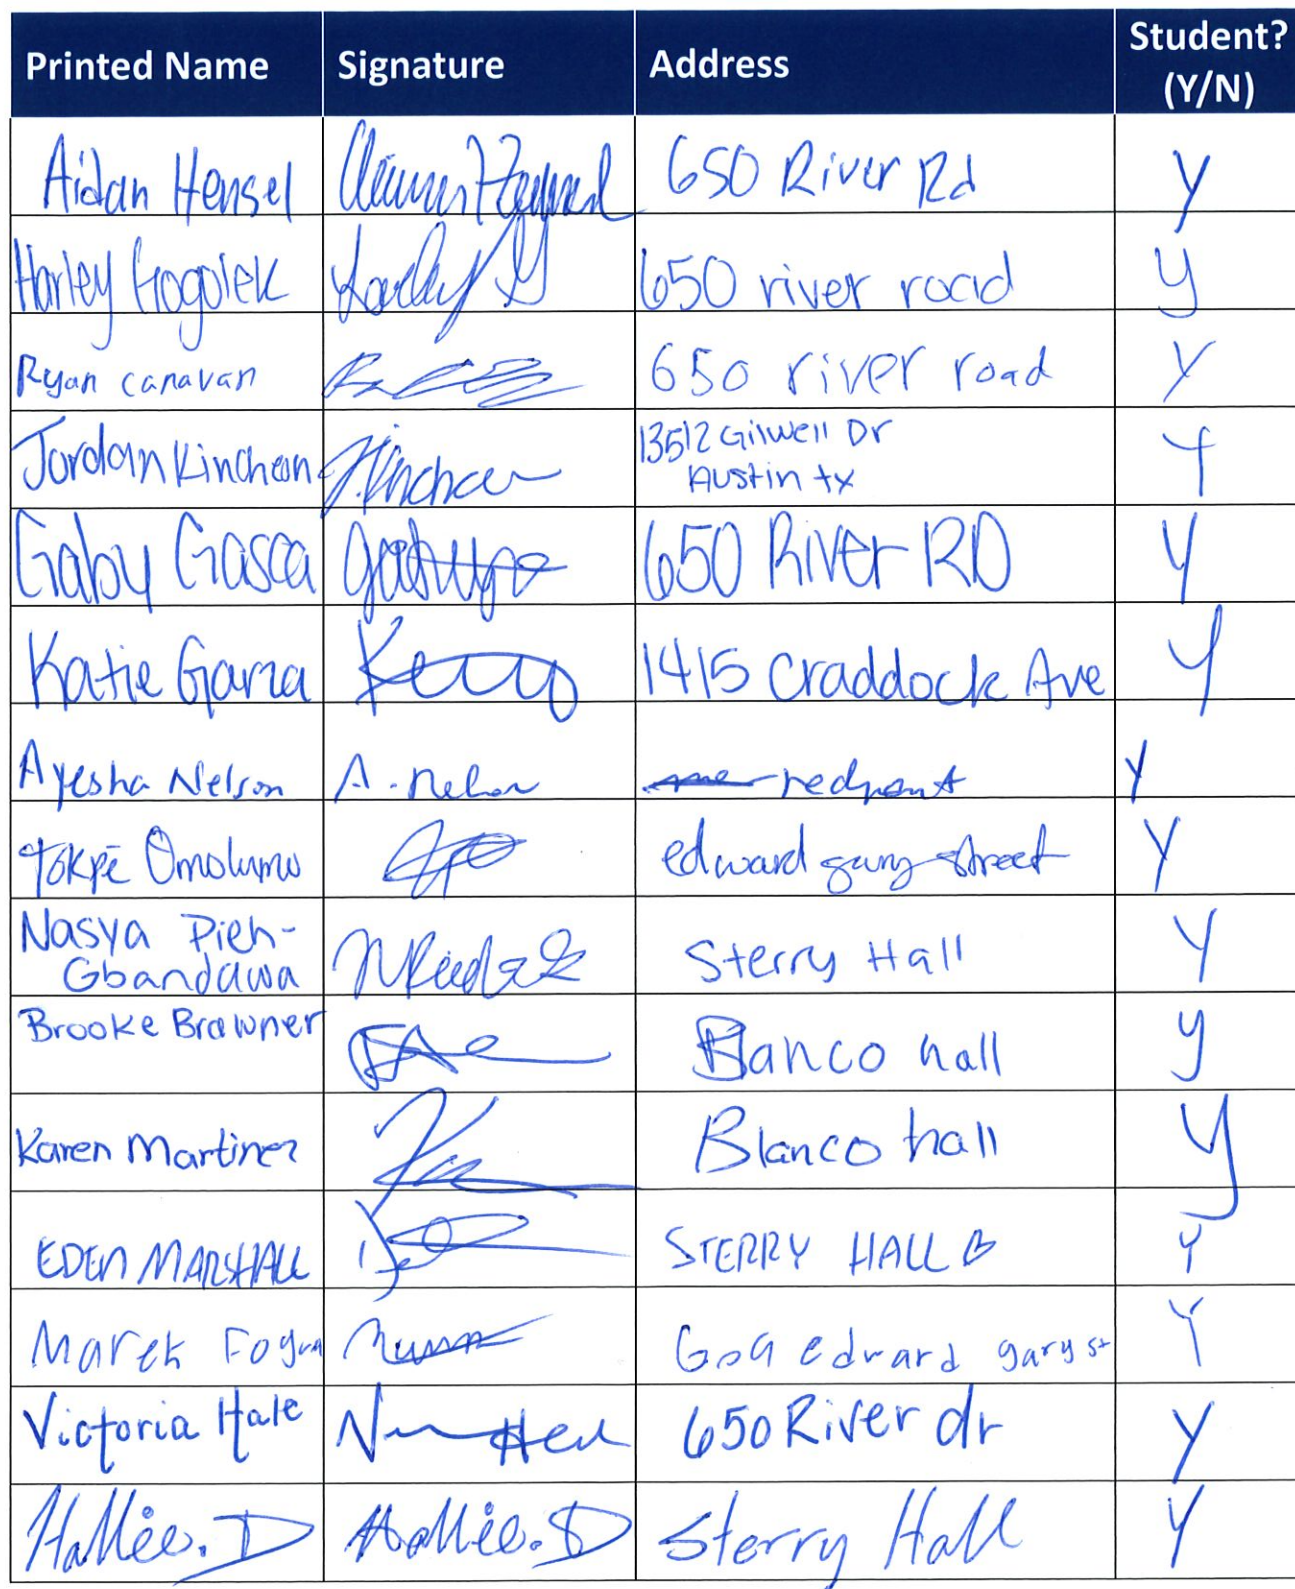 Printed Name Signature Address Student? (Y/N)
Aidan Hensel 650 River Rd Y
Harley Gogolek Harley G 650 river road y
Ryan canavan 650 river road Y
Jordan Kincheon J. Kincheon 13512 Gilwell Dr Y
Austin tx
Gaby Gasca 650 River RD Y
Katie Garza 1415 Craddock Ave Y
Ayesha Nelson A. Nelson redpoint Y
Omolumo edward gary street Y
Nasya Pieh- Sterry Hall Y
Gbandawa
Brooke Brawner Blanco hall y
Karen Martinez Blanco hall y
EDEN MARSHALL STERRY HALL Y
Marek edward gary st Y
Victoria Hale 650 River dr Y
Hallie. D Hallie. D Sterry Hall Y